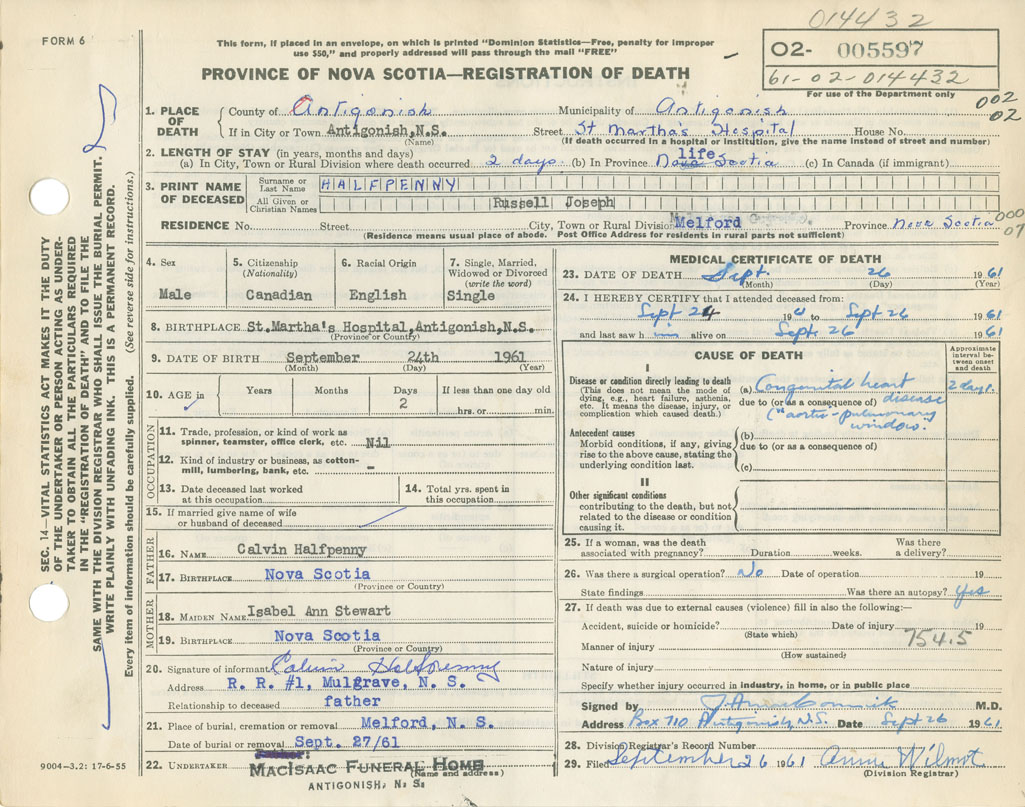 014432
FORM 6
This form, if placed in an envelope, on which is printed "Dominion Statistics—Free, penalty for improper
use $50," and properly addressed will pass through the mail "FREE"
02- 005597
61-02-014432
For use of the Department only
PROVINCE OF NOVA SCOTIA—REGISTRATION OF DEATH
002
02
1. PLACE OF DEATH
County of Antigonish Municipality of Antigonish
If in City or Town Antigonish, N.S. Street St Martha's Hospital House No.
(Name) (If death occurred in a hospital or institution, give the name instead of street and number)
2. LENGTH OF STAY (in years, months and days)
(a) In City, Town or Rural Division where death occurred 2 days (b) In Province Nova Scotia life (c) In Canada (if immigrant)
3. PRINT NAME OF DECEASED
Surname or Last Name HALFPENNY
All Given or Christian Names Russell Joseph
RESIDENCE No. Street City, Town or Rural Division Melford Province Nova Scotia
000
07
(Residence means usual place of abode. Post Office Address for residents in rural parts not sufficient)
4. Sex
Male
5. Citizenship (Nationality)
Canadian
6. Racial Origin
English
7. Single, Married, Widowed or Divorced (write the word)
Single
8. BIRTHPLACE St.Martha's Hospital,Antigonish,N.S.
(Province or Country)
9. DATE OF BIRTH September 24th 1961
(Month) (Day) (Year)
10. AGE in Years Months Days 2 If less than one day old hrs. or min.
OCCUPATION
11. Trade, profession, or kind of work as spinner, teamster, office clerk, etc. Nil
12. Kind of industry or business, as cotton-mill, lumbering, bank, etc. -
13. Date deceased last worked at this occupation
14. Total yrs. spent in this occupation
15. If married give name of wife or husband of deceased
FATHER
16. NAME Calvin Halfpenny
17. BIRTHPLACE Nova Scotia
(Province or Country)
MOTHER
18. MAIDEN NAME Isabel Ann Stewart
19. BIRTHPLACE Nova Scotia
(Province or Country)
20. Signature of informant Calvin Halfpenny
Address R. R. #1, Mulgrave, N. S.
Relationship to deceased father
21. Place of burial, cremation or removal Melford, N. S.
Date of burial or removal Sept. 27/61
22. UNDERTAKER MACISAAC FUNERAL HOME
(Name and address)
ANTIGONISH, N. S.
9004-3.2: 17-6-55
MEDICAL CERTIFICATE OF DEATH
23. DATE OF DEATH Sept. 26 1961
(Month) (Day) (Year)
24. I HEREBY CERTIFY that I attended deceased from:
Sept 24 1961 to Sept 26 1961
and last saw him alive on Sept 26 1961
CAUSE OF DEATH
Approximate interval between onset and death
I
Disease or condition directly leading to death
(This does not mean the mode of dying, e.g., heart failure, asthenia, etc. It means the disease, injury, or complication which caused death.)
(a) Congenital heart disease 2 days.
due to (or as a consequence of)
("aortic-pulmonary window."
Antecedent causes
Morbid conditions, if any, giving rise to the above cause, stating the underlying condition last.
(b)
due to (or as a consequence of)
(c)
II
Other significant conditions
contributing to the death, but not related to the disease or condition causing it.
25. If a woman, was the death associated with pregnancy? Duration weeks. Was there a delivery?
26. Was there a surgical operation? No Date of operation 19
State findings Was there an autopsy? yes
27. If death was due to external causes (violence) fill in also the following:—
Accident, suicide or homicide? Date of injury 19
(State which)
754.5
Manner of injury
(How sustained)
Nature of injury
Specify whether injury occurred in industry, in home, or in public place
Signed by M.D.
Address Box 710 Antigonish, N.S. Date Sept 26 1961
28. Division Registrar's Record Number
29. Filed September 26 1961 Annie Wilmot
(Division Registrar)
SEC. 14—VITAL STATISTICS ACT MAKES IT THE DUTY
OF THE UNDERTAKER OR PERSON ACTING AS UNDER-
TAKER TO OBTAIN ALL THE PARTICULARS REQUIRED
IN THE "REGISTRATION OF DEATH" AND TO FILE THE
SAME WITH THE DIVISION REGISTRAR WHO SHALL ISSUE THE BURIAL PERMIT.
WRITE PLAINLY WITH UNFADING INK. THIS IS A PERMANENT RECORD.
Every item of information should be carefully supplied. (See reverse side for instructions.)